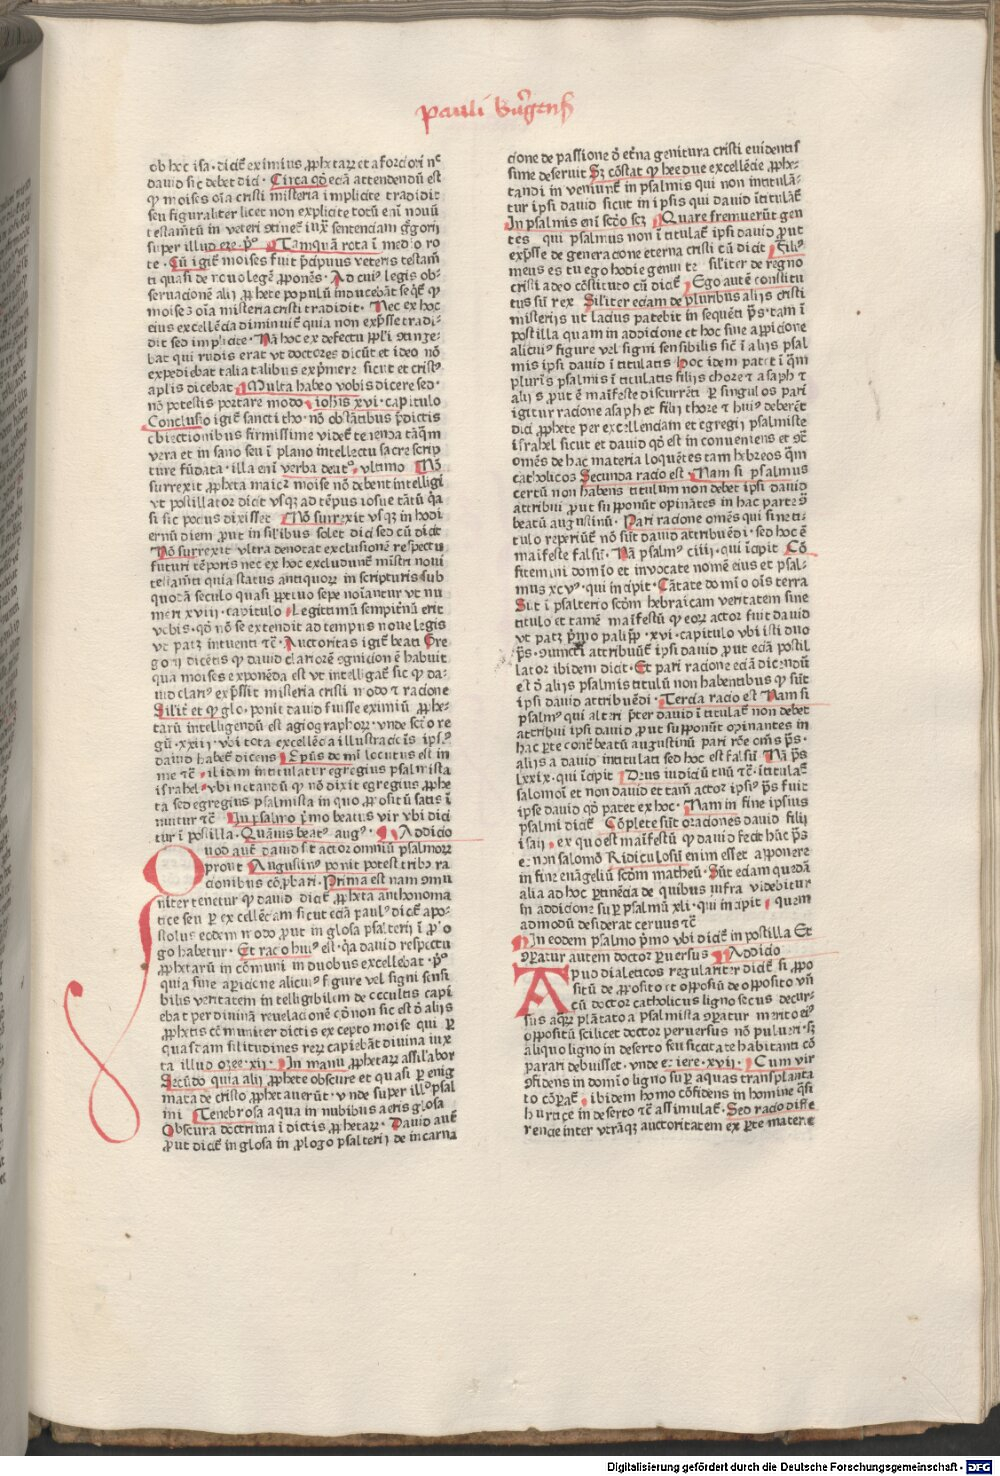 Pauli Burgenſ
ob hec ifa · dicit̄ eximius ꝓphetaꝝ et a forciori nͨ
dauid sic debet dici · Circa qđ eciā attendendū est
ꝙ moises oīa cristi misteria implicite tradidit
seu figuraliter licet non explicite totū enī nouū
testamētū in veteri ꝯtinet̄ iuxͣ sentenciam gͤgorij
super illud eze · pͦ · Tamquā rota ī medio ro
te · Cū igit̄ moises fuit p̄cipuus veteris testam̄
ti quasi de nouo legē ꝓponēs · Ad cuiꝰ legis ob-
seruacionē alij ꝓphete populū inducebāt seqt̄ ꝙ
moises oīa misteria cristi tradidit · Nec ex hoc
eius excellēcia diminuit̄ quia non exp̄sse tradi-
dit sed implicite · Nā hoc ex defectu ppl'i ꝯtinge-
bat qui rudis erat vt doctores dicūt et ideo nō
expediebat talia talibus exp̄mere sicut et cristꝰ
aplis dicebat · Multa habeo vobis dicere sed ·
nō potestis portare modo · iohīs xvi · capitulo
Conclusio igit̄ sancti tho · nō obstātibus p̄dictis
obiectionibus firmissime videt̄ tenenda tāqͫ
vera et in sano seu ī plano intellectu sacre scrip
ture fūdata · illa enī verba deutͦ · vltimo Nō
surrexit ꝓpheta maior moise nō debent intelligi
vt postillator dicit vsqꝫ ad tēpus iosue tātū qͣ
si sic pocius dixisset Nō surrexit vsqꝫ in hodi
ernū diem ꝓut in sil'ibus solet dici sed cū dicit̄
Nō surrexit vltra denotat exclusionē respectu
futuri tēporis nec ex hoc excludunt̄ mīstri noui
testamēti quia status antiquoꝝ in scripturis sub
quodā seculo quasi ꝑpetuo sepe noīantur vt nu
meri xviii · capitulo · Legittimū sempit̄nū erit
vobis · qđ nō se extendit ad tempus noue legis
vt patꝫ intuenti tc̄ · Auctoritas igit̄ beati Gre
gorij dicētis ꝙ dauid clariorē ꝯgnicionē habuit
qua moises exponēda est vt intelligat̄ sic ꝙ da-
uid clariꝰ exp̄ssit misteria cristi modo t racione
Silit̄ et ꝙ glo · ponit dauid fuisse eximiū ꝓphe-
tarū intelligendū est agiographoꝝ · vnde scd̄o re
gū · xxiii · vbi tota excellēcia illustracōis ipsiꝰ
dauid habet̄ dicens Sp̄us dn̄i locutus est in
me tc̄ · ibidem intitulatur egregius psalmista
israhel · vbi notandū ꝙ nō dixit egregius ꝓphe
ta sed egregius psalmista in quo ꝓpositū satis ī
nuitur tc̄ In psalmo pͥmo beatus vir vbi dici
tur ī postilla · Quāuis beatꝰ augꝰ · Addicio
Quod aut̄ dauid sit actor omniū psalmoꝝ
prout Augustinꝰ ponit potest tribꝰ ra
cionibus cōprobari · Prima est nam ꝯmu
niter tenetur ꝙ dauid dicit̄ ꝓpheta anthonoma
tice seu ꝑ excellēciam sicut eciā paulꝰ dicit̄ apo-
stolus eodem modo ꝓut in glosa psalterij ī ꝓlo
go habetur · Et racio huiꝰ est · qͣ dauid respectu
ꝓphetarū in cōmuni in duobus excellebat · pͦ ·
quia sine apicione alicuiꝰ figure vel signi sensi
bilis veritatem intelligibilem de occultis capi
ebat per diuinā reuelacionē qd̄ non sic est ō alijs
ꝓphetis cōmuniter dictis excepto moise qui ꝑ
quasdam silitudines rerꝝ capiebāt diuina iux
ta illud ozee · xii · In manu ꝓphetaꝝ assilabor
Secūdo quia alij ꝓphete obscure et quasi ꝑ enig
mata de cristo ꝓphetauerūt · vnde super illꝰ psal
mi Tenebrosa aqua in nubibus aeris glosa
Obscura doctrina ī dictis ꝓphetaꝝ · Dauid aut̄
ꝓut dicit̄ in glosa in ꝓlogo psalterij de incarna
cione de passione ō et̄na genitura cristi euidentis
sime deseruit Sꝫ cōstat ꝙ hee due excellēcie ꝓphe-
tandi inueniunt̄ in psalmis qui non intitulā-
tur ipsi dauid sicut in ipsis qui dauid ītitulāt̄
In psalmis enī scd̄o scꝫ Quare fremuerūt gen
tes qui psalmus non ītitulat̄ ipsi dauid ꝓut
exp̄sse de generacione eterna cristi cū dicit Filiꝰ
meus es tu ego hodie genui te siliter de regno
cristi a deo cōstituto cū dicit̄ Ego autē constitu
tus sū rex Siliter eciam de pluribus alijs cristi
misterijs ut lacius patebit in sequēti p̄s · tam ī
postilla quam in addicione et hoc sine appicione
alicuiꝰ figure vel signi sensibilis sic̄ ī alijs psal
mis ipsi dauid ītitulatis hoc idem patet ī qͫ
plurīs psalmis ītitulatis filijs chore t asaph t
alijs put ē maīfeste discurrēti ꝑ singulos pari
igitur racione asaph et filij chore t huiꝰ deberēt
dici ꝓphete per excellenciam et egregij psalmiste
israhel sicut et dauid qđ est inconueniens et ꝯt̄
omēs de hac materia loquētes tam hebreos qͫ
catholicos Secunda racio est Nam si psalmus
certū non habens titulum non debet ipsi dauid
attribui ꝓut supponūt opinātes in hac parte ꝯ̄
beatū augustinū · Pari racione omēs qui sine ti-
tulo reperiūt̄ nō sūt dauid attribuēdi · sed hoc ē
maīfeste falsū · Nā psalmꝰ ciiii · qui īcipit Cō
fitemini domīo et inuocate nomē eius et psal-
mus xcvͦ · qui incipit · Cātate domīo oīs terra
Sūt ī psalterio scd̄m hebraicam veritatem sine
titulo et tamē maīfestū ꝙ eoꝝ actor fuit dauid
vt patꝫ pͥmo palipp̄ · xvi · capitulo vbi isti duo
p̄s · ꝯiuncti attribuūt̄ ipsi dauid ꝓut eciā postil
lator ibidem dicit · Et pari racione eciā dicendū
est ō alijs psalmis titulū non habentibus ꝙ sūt
ipsi dauid attribuēdi · Tercia racio est Nam si
psalmꝰ qui alteri p̄ter dauid ītitulat̄ non debet
attribui ipsi dauid ꝓut supponūt opinantes in
hac ꝑte cont̄ beatū augustinū pari rōe om̄s p̄s ·
alijs a dauid intitulati sed hoc est falsū Nā p̄s
lxxix · qui īcipit Deus iudiciū tuū tc̄ · ītitulat̄
salomōi et non dauid et tamē actor ipsiꝰ p̄s fuit
ipse dauid qđ patet ex hoc · Nam in fine ipsius
psalmi dicit̄ Cōplete sūt oraciones dauid filij
isaij · ex quo est maīfestū ꝙ dauid fecit hūc p̄s
et non salomō Ridiculosū enim esset apponere
in fine euāgelij scd̄m matheū · Sūt eciam quedā
alia ad hoc ꝑtinēcia de quibus infra videbitur
in addicione sup ꝑ psalmū xli · qui incipit · quem
admodū desiderat ceruus tc̄
In eodem psalmo pͥmo vbi dicit̄ in postilla Et
ꝯꝑatur autem doctor ꝑuersus Addicio
Apud dialeticos regulariter dicit̄ si ꝓpo
sitū de ꝓposito et oppositū de opposito vn̄
cū doctor catholicus ligno secus decur-
sus aqͣꝝ plātato a psalmista ꝯꝑatur merito eiꝰ
oppositū scilicet doctor peruersus nō pulueri · sꝫ
alicui ligno in deserto seu siccitate habitanti cō
parari debuisset · vnde et iere · xvii · Cum vir
ꝯfidens in domīo ligno suꝑ aquas transplanta
to cōꝑat̄ · ibidem homo cōfidens in homine qͣsi
mirice in deserto tc̄ assimulat̄ · Sed racio diffe
rencie inter vtrāqꝫ auctoritatem ex ꝑte materie
Digitalisierung gefördert durch die Deutsche Forschungsgemeinschaft - DFG